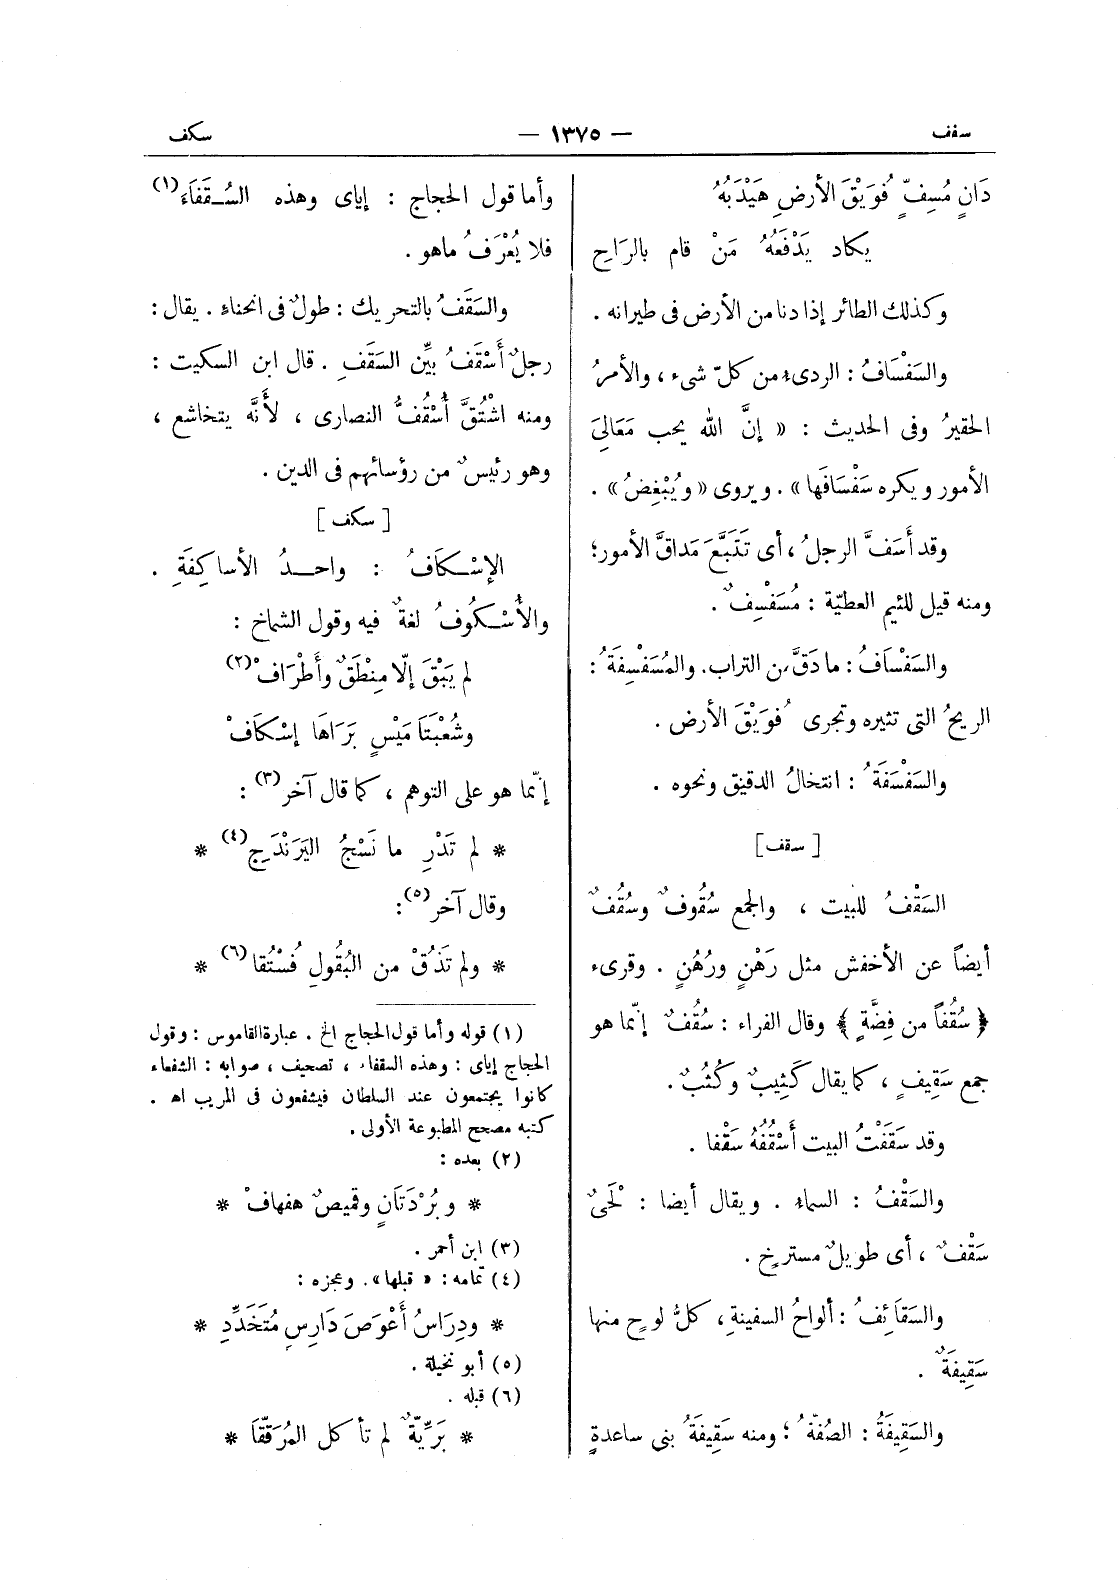 سفف
— ١٣٧٥ —
سكف
دَانٍ مُسِفٍّ فُوَيْقَ الأرضِ هَيْدَبُهُ
يكاد يَدْفَعُهُ مَنْ قام بالرَاحِ
وكذلك الطائر إذا دنا من الأرض فى طيرانه .
والسَفْسَافُ : الردىء من كلّ شىء ، والأمرُ
الحقيرُ وفى الحديث : « إنَّ الله يحب مَعَالِىَ
الأمور ويكره سَفْسَافَها » . ويروى « ويُبْغِضُ » .
وقد أَسَفَّ الرجلُ ، أى تَتَبَّعَ مَداقَّ الأمور ؛
ومنه قيل للئيم العطيّة : مُسَفْسِفٌ .
والسَفْسَافُ : ما دَقَّ من التراب . والمُسَفْسِفَةُ :
الريحُ التى تثيره وتجرى فُوَيْقَ الأرض .
والسَفْسَفَةُ : انتخالُ الدقيق ونحوه .
[ سقف ]
السَقْفُ للبيت ، والجمع سُقُوفٌ وسُقُفٌ
أيضاً عن الأخفش مثل رَهْنٍ ورُهُنٍ . وقرىء
﴿ سُقُفاً من فِضَّةٍ ﴾ وقال الفراء : سُقُفٌ إنّما هو
جمع سَقِيفٍ ، كما يقال كَثِيبٌ وكُثُبٌ .
وقد سَقَفْتُ البيت أَسْقُفُهُ سَقْفا .
والسَقْفُ : السماء . ويقال أيضا : لَحْىٌ
سَقْفٌ ، أى طويلٌ مسترخٍ .
والسَقَائِفُ : ألواحُ السفينةِ ، كلُّ لوحٍ منها
سَقِيفَةٌ .
والسَقِيفَةُ : الصُفّةُ ؛ ومنه سَقِيفَةُ بنى ساعدةٍ
وأما قول الحجاج : إياى وهذه السُقَفَاءَ (١)
فلا يُعْرَفُ ماهو .
والسَقَفُ بالتحريك : طولٌ فى انحناء . يقال :
رجلٌ أَسْقَفُ بيِّن السَقَفِ . قال ابن السكيت :
ومنه اشْتُقَّ أُسْقُفُّ النصارى ، لأنَّه يتخاشع ،
وهو رئيسٌ من رؤسائهم فى الدين .
[ سكف ]
الإسْكَافُ : واحدُ الأساكِفَةِ .
والأُسْكُوفُ لغةٌ فيه وقول الشماخ :
لم يَبْقَ إلّا مِنْطَقٌ وأَطْرَافْ (٢)
وشُعْبَتَا مَيْسٍ بَرَاهَا إسْكَافْ
إنّما هو على التوهم ، كما قال آخر (٣) :
* لم تَدْرِ ما نَسْجُ اليَرَنْدَجِ (٤) *
وقال آخر (٥) :
* ولم تَذُقْ من البُقُولِ فُسْتُقا (٦) *
(١) قوله وأما قول الحجاج الخ . عبارة القاموس : وقول
الحجاج إياى : وهذه السقفاء ، تصحيف ، صوابه : الشفعاء
كانوا يجتمعون عند السلطان فيشفعون فى المريب اه .
كتبه مصحح المطبوعة الأولى .
(٢) بعده :
* وبُرْدَتَانِ وقميصٌ هفهافْ *
(٣) ابن أحمر .
(٤) تمامه : « قبلها » . وعجزه :
* ودِرَاسُ أَعْوَصَ دَارِسٍ مُتَخَدِّدِ *
(٥) أبو نخيلة .
(٦) قبله .
* بَرِّيّةٌ لم تأكل المُرَقّقَا *